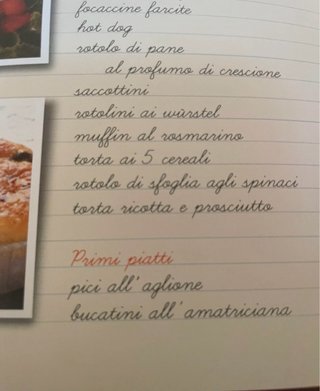 focaccine farcite
hot dog
rotolo di pane
al profumo di crescione
saccottini
rotolini ai würstel
muffin al rosmarino
torta ai 5 cereali
rotolo di sfoglia agli spinaci
torta ricotta e prosciutto
Primi piatti
pici all'aglione
bucatini all'amatriciana